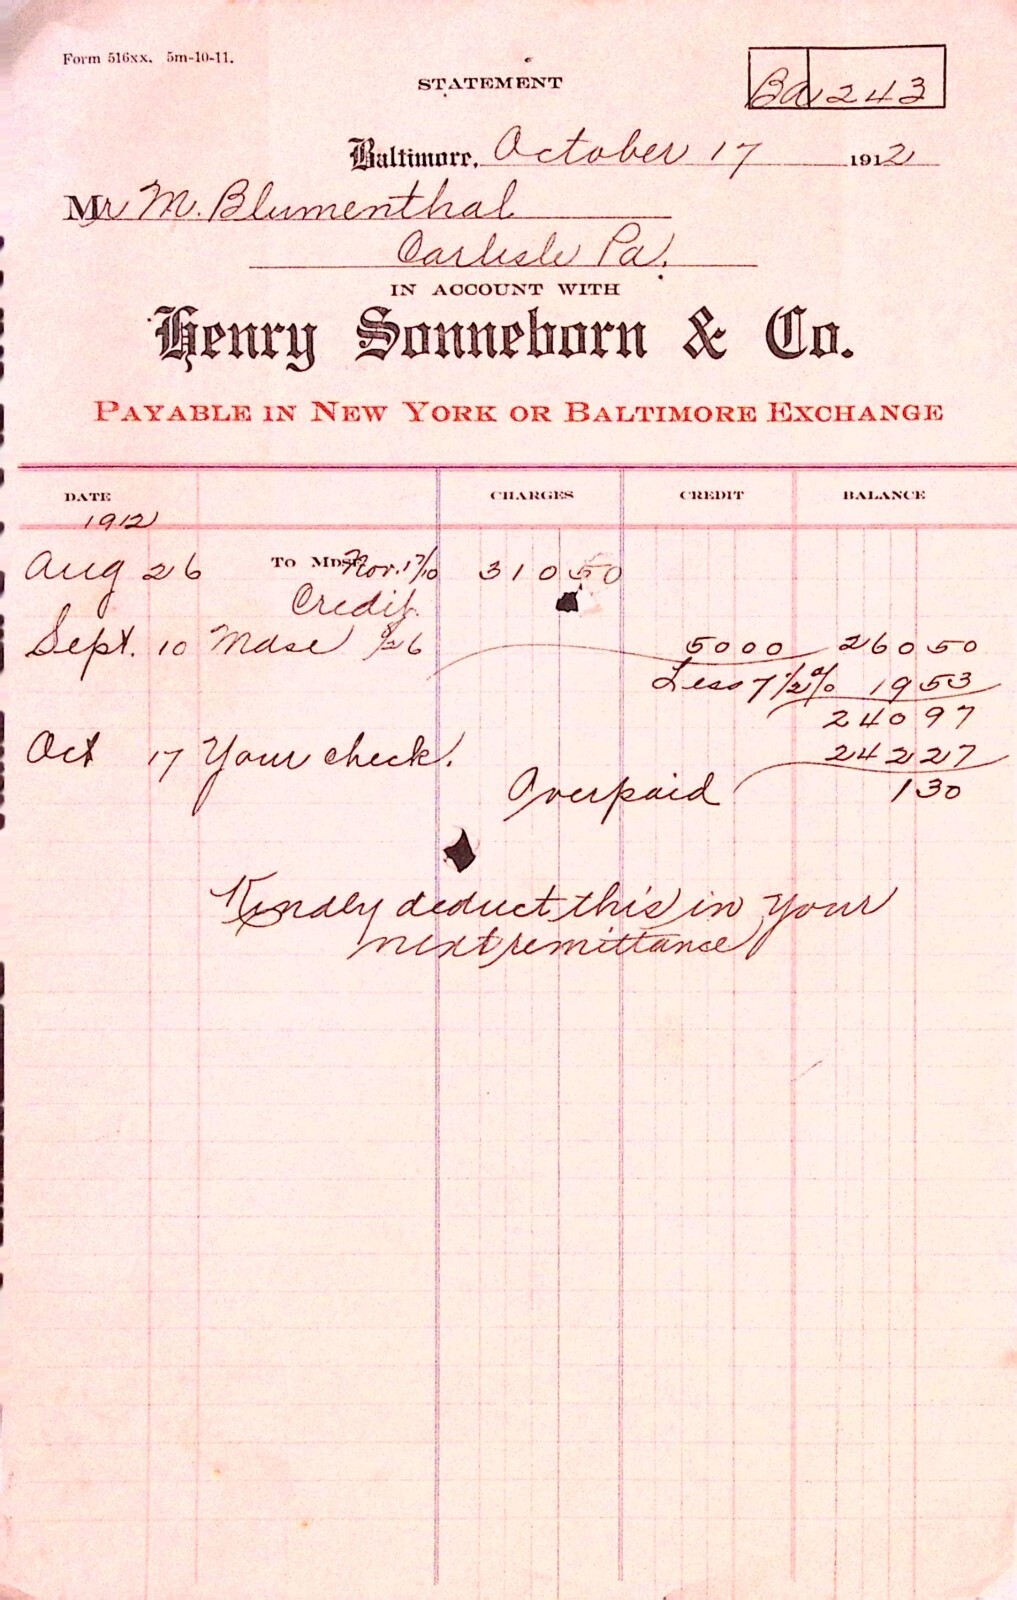 Form 516xx. 5m-10-11.
STATEMENT
Ba 1243
Baltimore, October 17 1912
Mr M. Blumenthal
Carlisle Pa.
IN ACCOUNT WITH
Henry Sonneborn & Co.
PAYABLE IN NEW YORK OR BALTIMORE EXCHANGE
DATE CHARGES CREDIT BALANCE
1912
Aug 26 TO MDSE Nov. 17/10 310 50
Credit
Sept. 10 Mdse 8/26 50 00 260 50
Less 7 1/2% 19 53
240 97
Oct 17 Your check. 242 27
Overpaid 1 30
Kindly deduct this in your
next remittance